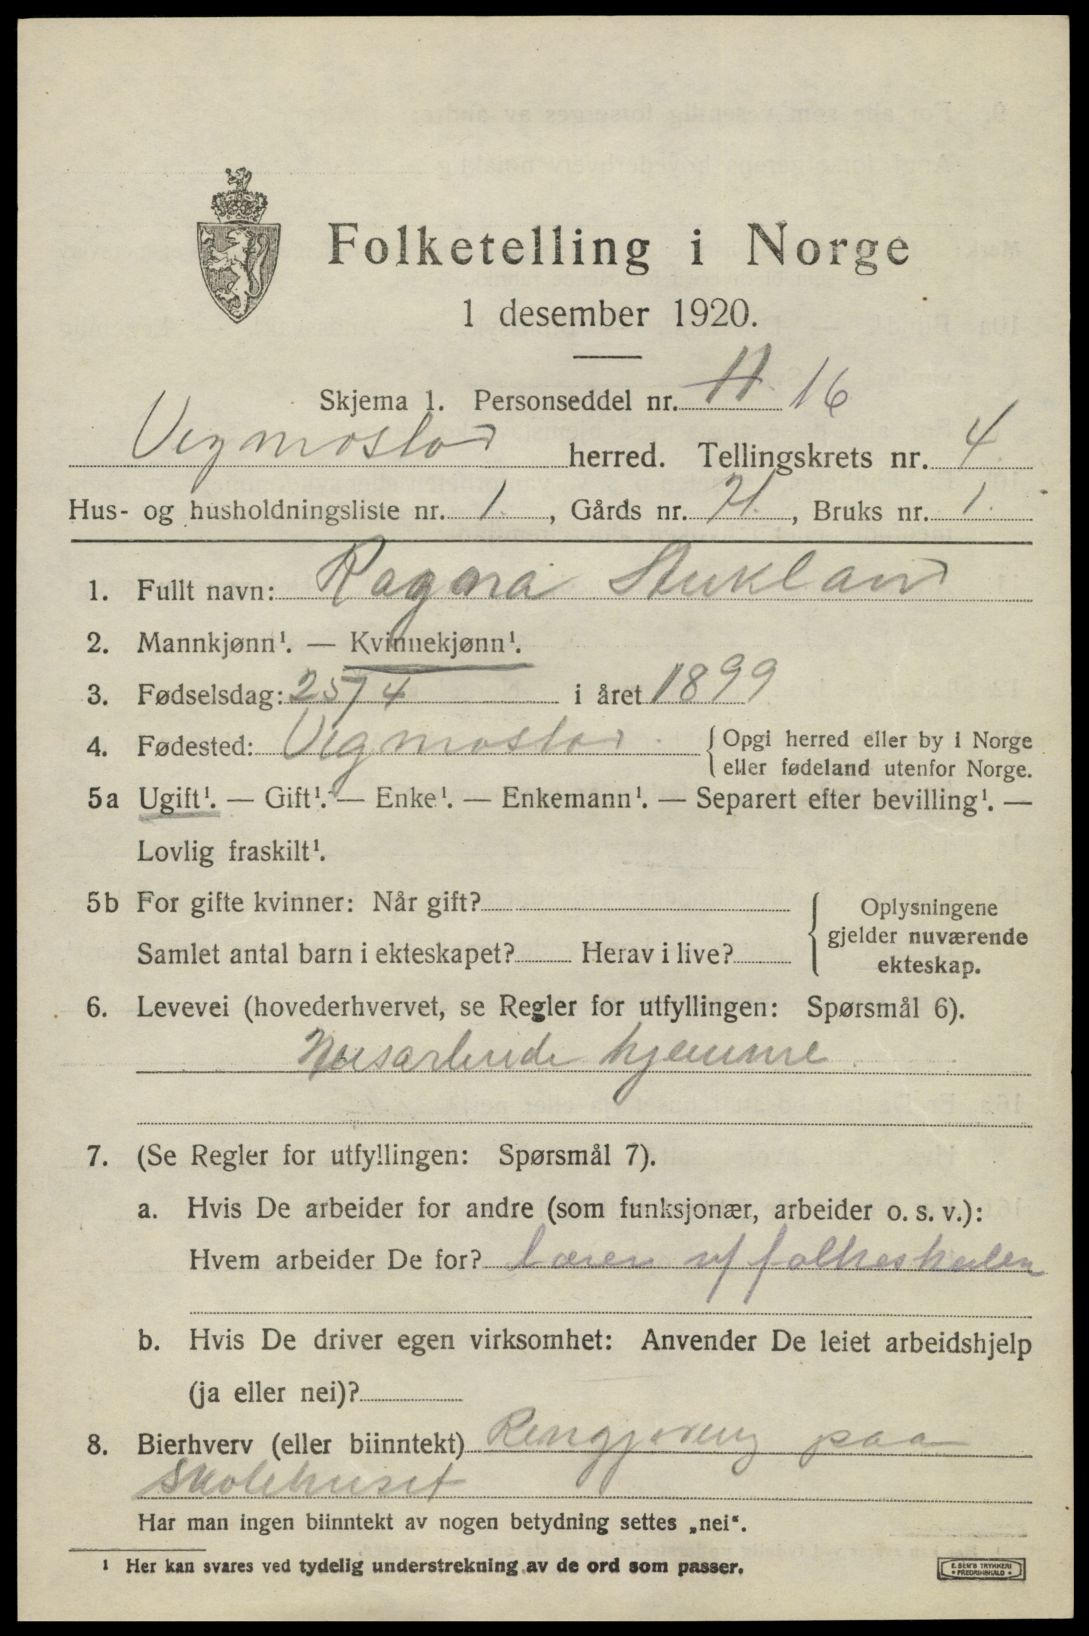 Folketelling i Norge
1 desember 1920.
Skjema 1. Personseddel nr. 11. 16
Vegmostad herred. Tellingskrets nr. 4.
Hus- og husholdningsliste nr. 1., Gårds nr. 71., Bruks nr. 1.
1. Fullt navn: Ragna Stukland
2. Mannkjønn¹. — Kvinnekjønn¹.
3. Fødselsdag: 25/4 i året 1899
4. Fødested: Vigmostad. {Opgi herred eller by i Norge
eller fødeland utenfor Norge.
5a Ugift¹. — Gift¹. — Enke¹. — Enkemann¹. — Separert efter bevilling¹. —
Lovlig fraskilt¹.
5b For gifte kvinner: Når gift?
Samlet antal barn i ekteskapet? Herav i live?
{Oplysningene
gjelder nuværende
ekteskap.
6. Levevei (hovederhvervet, se Regler for utfyllingen: Spørsmål 6).
Husarbeide hjemme.
7. (Se Regler for utfyllingen: Spørsmål 7).
a. Hvis De arbeider for andre (som funksjonær, arbeider o. s. v.):
Hvem arbeider De for? Lærer v/ folkeskolen
b. Hvis De driver egen virksomhet: Anvender De leiet arbeidshjelp
(ja eller nei)?
8. Bierhverv (eller biinntekt) Rengjøring paa
Skolehuset
Har man ingen biinntekt av nogen betydning settes „nei“.
¹ Her kan svares ved tydelig understrekning av de ord som passer.
E. SEM'S TRYKKERI
• FREDRIKSHALD •